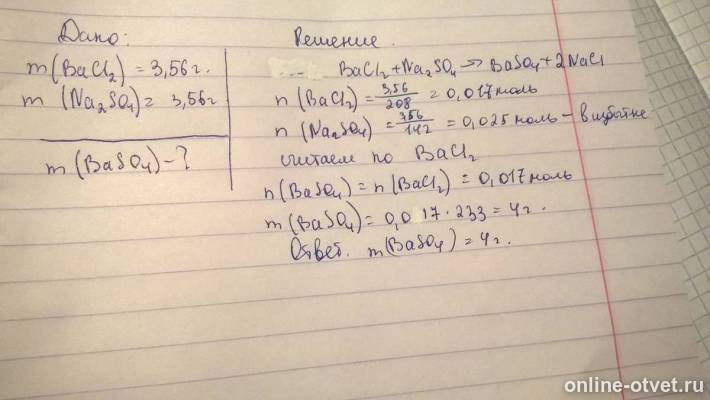 Дано:
m (BaCl₂) = 3,56 г.
m (Na₂SO₄) = 3,56 г
m (BaSO₄) - ?
Решение.
BaCl₂ + Na₂SO₄ → BaSO₄ + 2NaCl
n (BaCl₂) = 3,56/208 = 0,017 моль
n (Na₂SO₄) = 356/142 = 0,025 моль - в избытке
считаем по BaCl₂
n (BaSO₄) = n (BaCl₂) = 0,017 моль
m (BaSO₄) = 0,017 · 233 = 4 г.
Ответ. m (BaSO₄) = 4 г.
online-otvet.ru